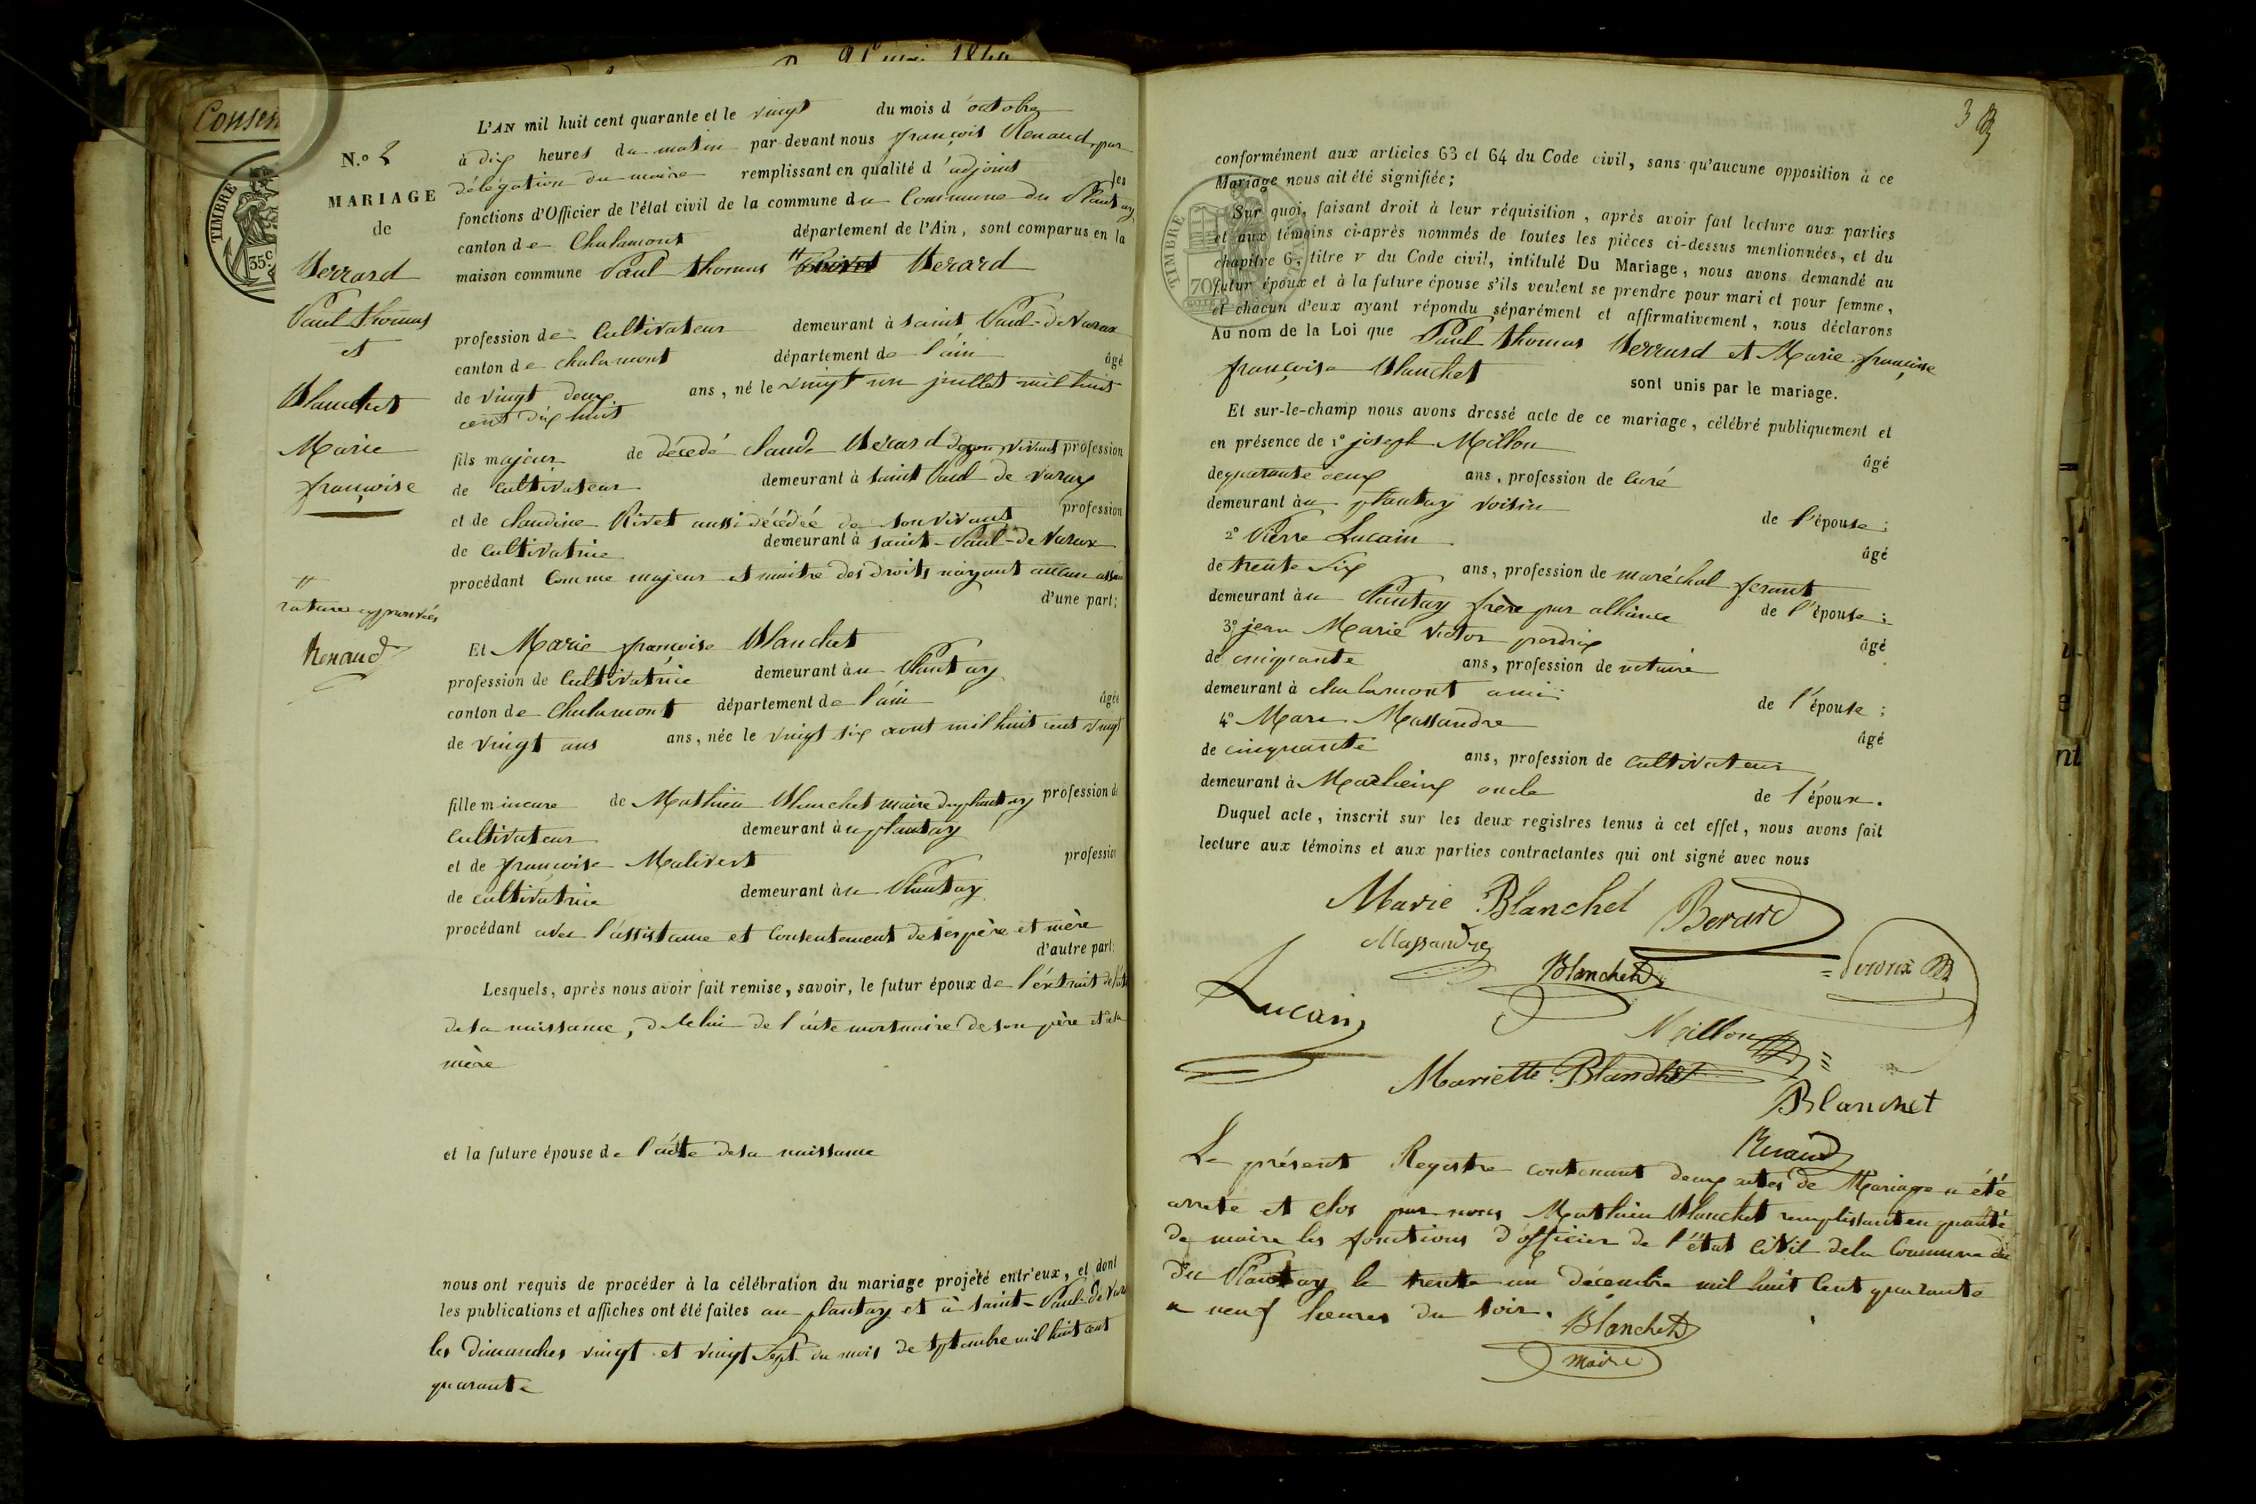 Consen
TIMBRE
35 c
N.º 2
MARIAGE
de
Berrard
Paul thomas
et
Blanchet
Marie
françoise
rature approuvée
Renaud
L'AN mil huit cent quarante et le vingt du mois d'octobre
à dix heures du matin par-devant nous françois Renaud, par
délégation du maire remplissant en qualité d'adjoint les
fonctions d'Officier de l'état civil de la commune du Commune du Plantay
canton de Chalamont département de l'Ain, sont comparus en la
maison commune Paul thomas Berard
profession de Cultivateur demeurant à saint Paul-de Varax
canton de chalamont département de l'ain âgé
de vingt deux ans, né le vingt un juillet mil huit
cent dix huit
fils majeur de décédé Claude Berard de son vivant profession
de cultivateur demeurant à saint Paul de Varax
et de claudine Rivet aussi décédée de son vivant profession
de cultivatrice demeurant à saint-Paul-de Varax
procédant comme majeur et maitre des droits n'ayant aucun
d'une part;
Et Marie françoise Blanchet
profession de Cultivatrice demeurant au Plantay
canton de Chalamont département de l'ain âgée
de vingt ans ans, née le vingt six aout mil huit cent vingt
fille mineure de Mathieu Blanchet maire du plantay profession de
cultivateur demeurant au plantay
et de françoise Malivert profession
de cultivatrice demeurant au Plantay
procédant avec l'assistance et consentement de ses père et mère
d'autre part;
Lesquels, après nous avoir fait remise, savoir, le futur époux de l'extrait de l'acte
de sa naissance, de celui de l'acte mortuaire de son père et de sa
mère
et la future épouse de l'acte de sa naissance
nous ont requis de procéder à la célébration du mariage projeté entr'eux, et dont
les publications et affiches ont été faites au plantay et à saint-Paul-de Var
les dimanches vingt et vingt sept du mois de septembre mil huit cent
quarante
3
TIMBRE
70
conformément aux articles 63 et 64 du Code civil, sans qu'aucune opposition à ce
Mariage nous ait été signifiée;
Sur quoi, faisant droit à leur réquisition, après avoir fait lecture aux parties
et aux témoins ci-après nommés de toutes les pièces ci-dessus mentionnées, et du
chapitre 6, titre v du Code civil, intitulé Du Mariage, nous avons demandé au
futur époux et à la future épouse s'ils veulent se prendre pour mari et pour femme,
et chacun d'eux ayant répondu séparément et affirmativement, nous déclarons
Au nom de la Loi que Paul thomas Berrard et Marie françoise
françoise Blanchet sont unis par le mariage.
Et sur-le-champ nous avons dressé acte de ce mariage, célébré publiquement et
en présence de 1º joseph Millon âgé
de quarante deux ans, profession de curé
demeurant au plantay voisin de l'épouse;
2º Pierre Lucain âgé
de trente six ans, profession de maréchal ferant
demeurant au Plantay frère par alliance de l'épouse;
3º jean Marie Victor perdrix âgé
de cinquante ans, profession de notaire
demeurant à chalamont ami de l'épouse;
4º Marc Massandre âgé
de cinquante ans, profession de cultivateur
demeurant à Marlieux oncle de l'époux.
Duquel acte, inscrit sur les deux registres tenus à cet effet, nous avons fait
lecture aux témoins et aux parties contractantes qui ont signé avec nous
Marie Blanchet Berard
Massandre
Blanchet
Lucain
Millon
Mariette Blanchet
Blanchet
Renaud
Le présent Registre contenant deux actes de Mariage a été
arreté et clos par nous Mathieu Blanchet remplissant en qualité
de maire les fonctions d'officier de l'état civil de la Commune du
du Plantay le trente un décembre mil huit Cent quarante
a neuf heures du soir.
Blanchet
maire